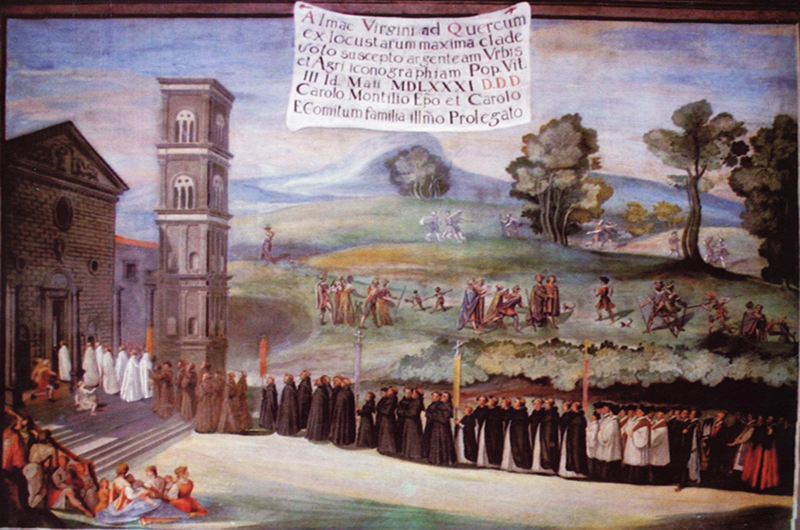 Almae Virgini ad Quercum
ex locustarum maxima clade
voto suscepto argenteam Vrbis
et Agri iconographiam Pop. Vit.
III Id. Maii MDLXXXI D.D.D
Carolo Montilio Epõ et Carolo
E Comitum familia illmõ Prolegato